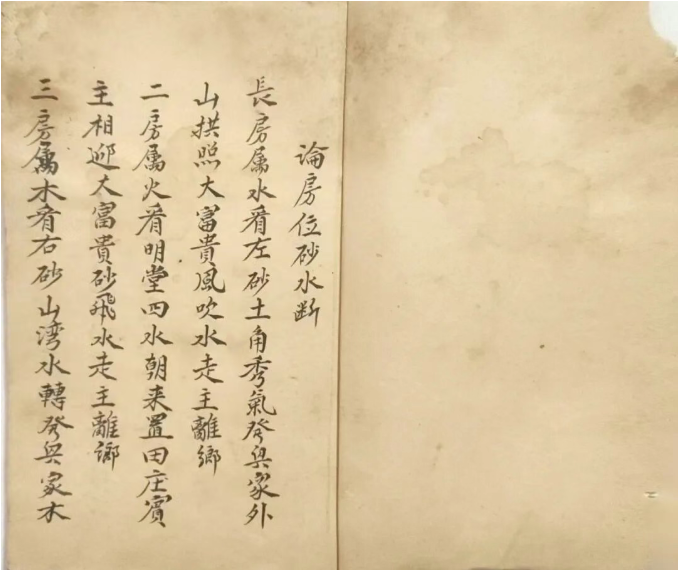 論房位砂水断
長房属水看左砂土角秀氣發與家外
山拱照大富貴風吹水走主離鄉
二房属火看明堂四水朝来置田庄賓
主相迎大富貴砂飛水走主離鄉
三房属木看右砂山湾水轉發與家木